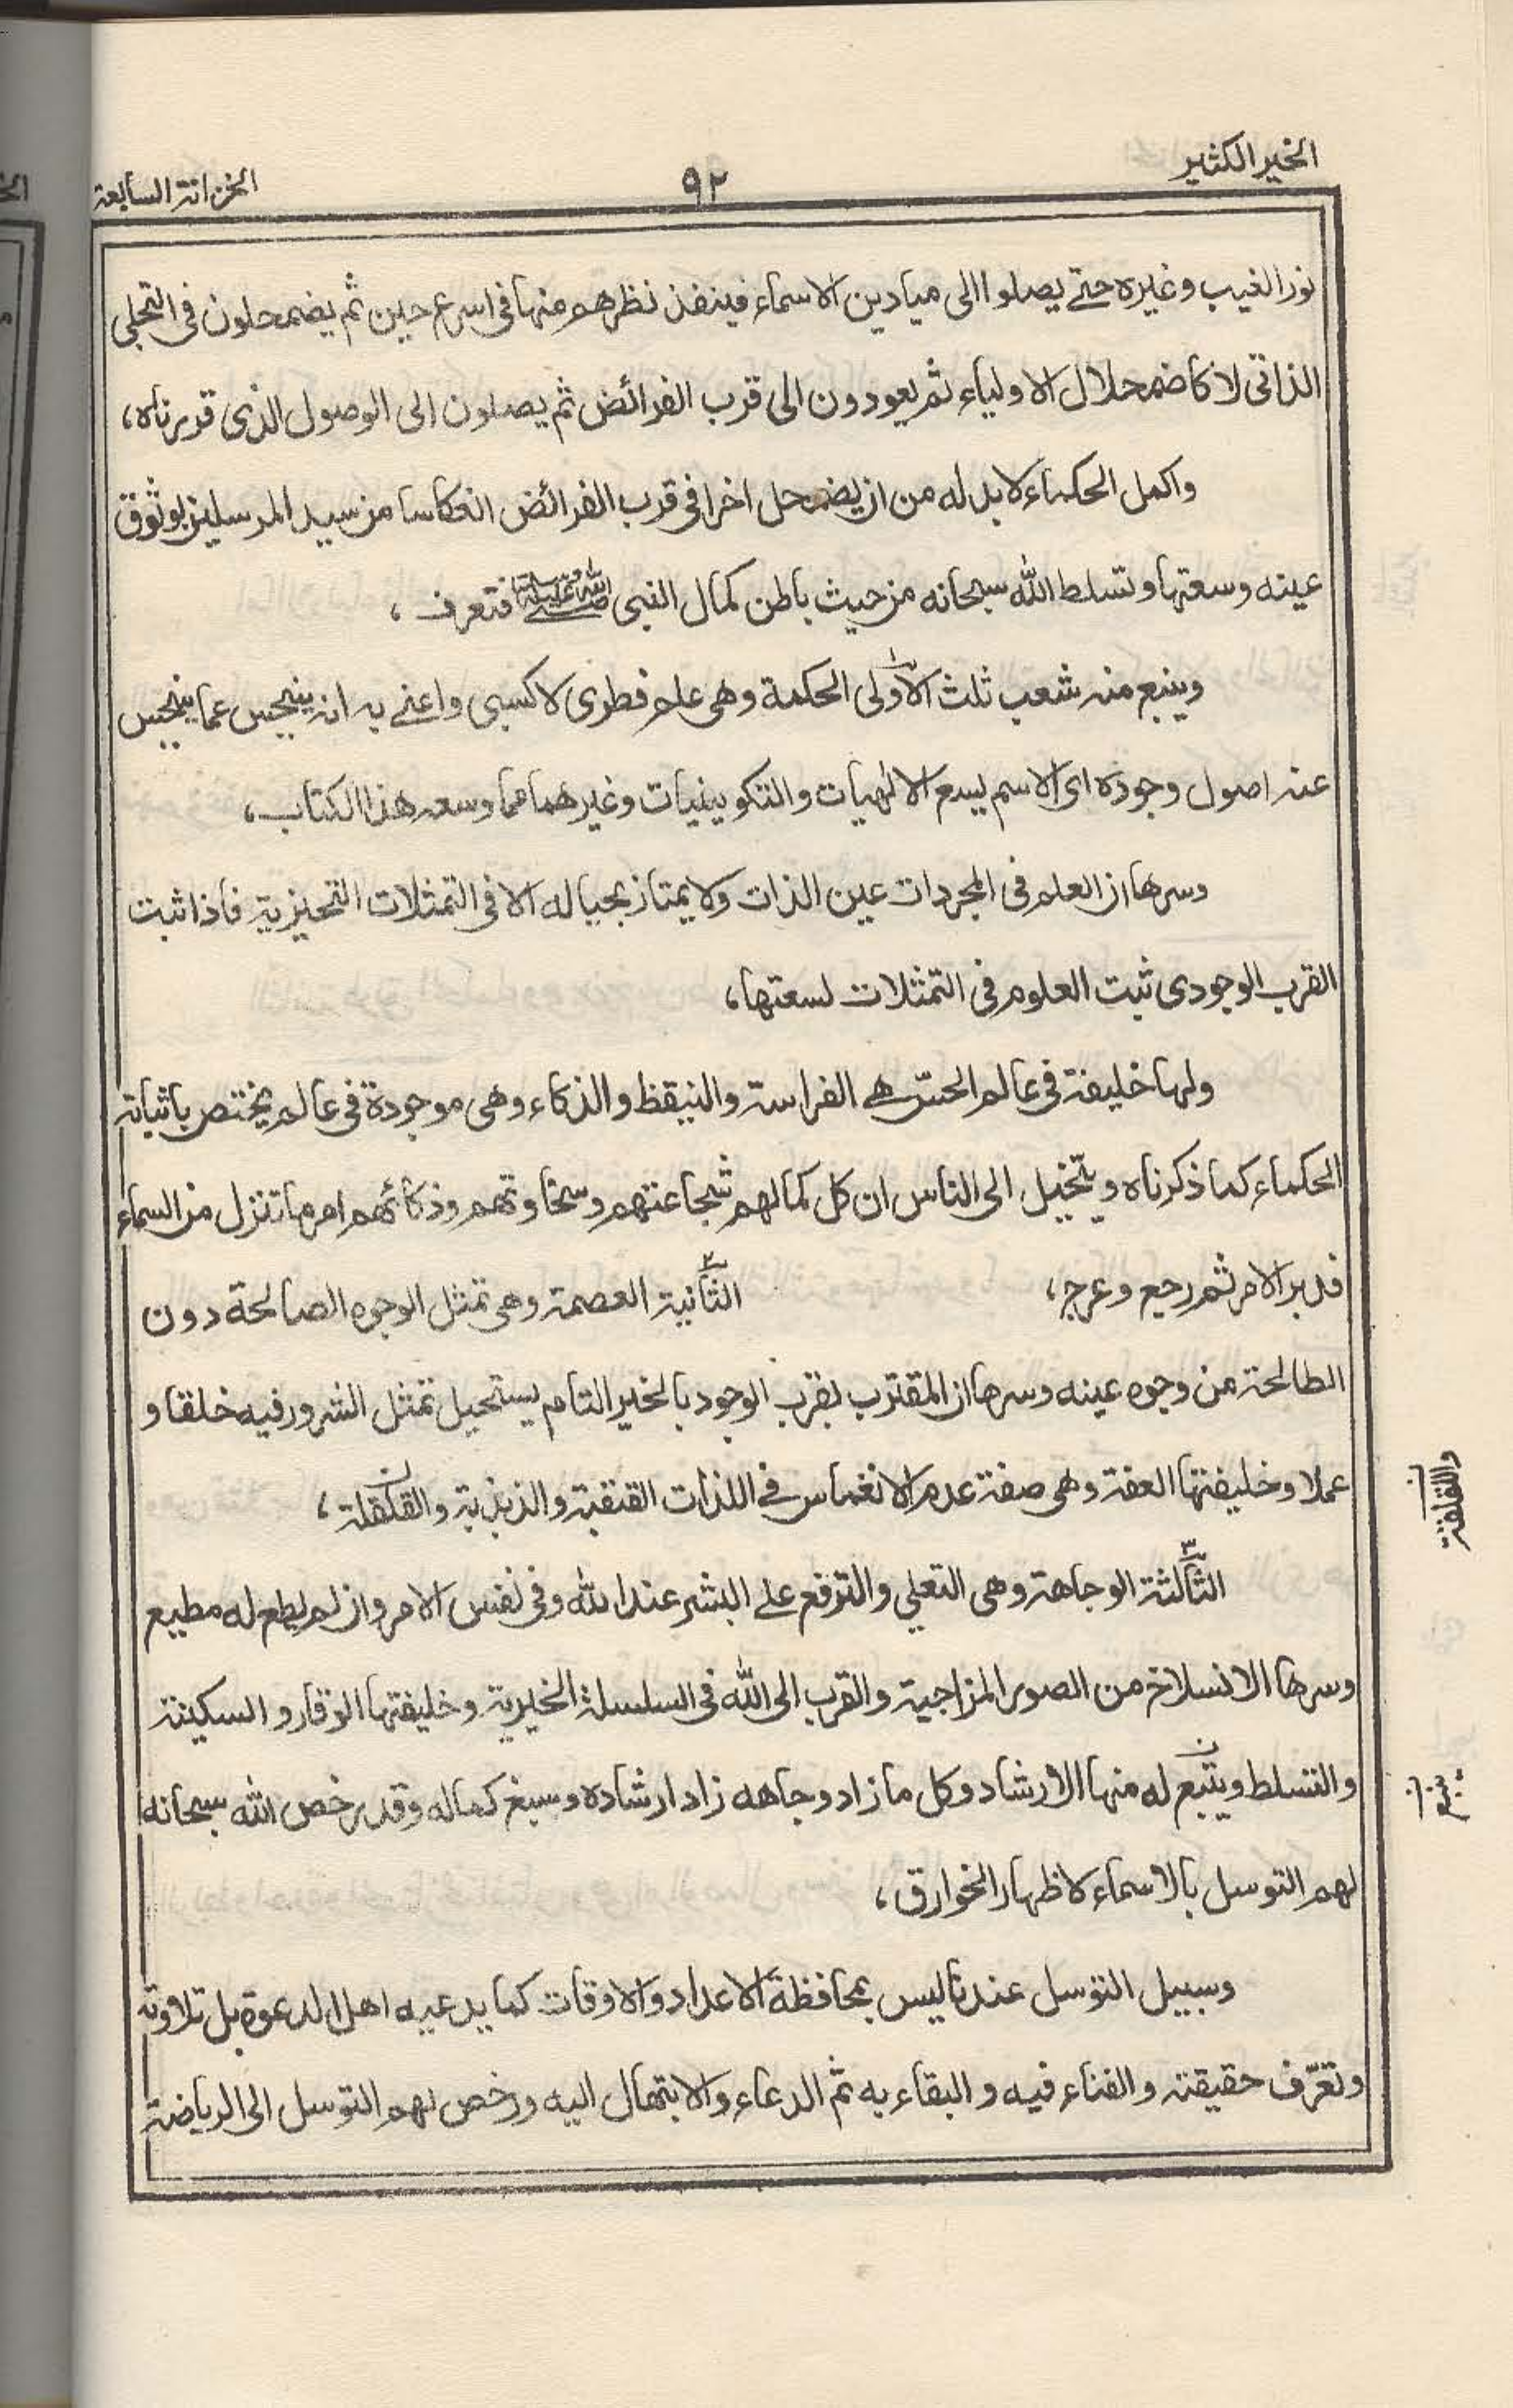 الخير الكثير
٩٢
الخزانة السابعة
نور الغيب وغيره حتے يصلوا الى ميادين الاسماء فينفذ نظرهم منها فى اسرع حين ثم يضمحلون فى التجلى
الذاتى لا كاضمحلال الاولياء ثم يعودون الى قرب الفرائض ثم يصلون الى الوصول الذى قدرناه،
واكمل الحكماء لا بد له من ان يضمحل اخرا فى قرب الفرائض انعكاسا من سيد المرسلين لوثوق
عينه وسعتها وتسلط الله سبحانه من حيث باطن كمال النبى صلى الله عليه وسلم فتعرف،
وينبع منه شعب ثلث الاولى الحكمة وهى علم فطرى لا كسبى واعنے به انه ينبجس عما ينبجس
عنه اصول وجوده اى الاسم ليسع الالٰهيات والتكوينيات وغيرهما مما وسعه هذا الكتاب،
وسرها ان العلم فى المجردات عين الذات ولا يمتاز بحياله الا فى التمثلات التحيزية فاذا ثبت
القرب الوجودى ثبت العلوم فى التمثلات لسعتها،
ولها خليفة فى عالم الحسّ هے الفراسة والتيقظ والذكاء وهى موجودة فى عالم يختص باثباته
الحكماء كما ذكرناه ويتخيل الى الناس ان كل كمالهم شجاعتهم وسخاوتهم وذكائهم امر ما تنزل من السماء
فدبر الامر ثم رجع وعرج، الثانية العصمة وهى تمثل الوجوه الصالحة دون
الطالحة من وجوه عينه وسرها ان المقترب بقرب الوجود بالخير التام يستحيل تمثل الشرور فيه خلقا و
عملا وخليفتها العفة وهى صفة عدم الانغماس فے اللذات القبقبة والذبذبة والقلقلة،
واللقلقة
الثالثة الوجاهة وهى التعلي والترفع علے البشر عند الله وفى نفس الامر وان لم يطع له مطيع
وسرها الانسلاخ من الصور المزاجية والقرب الى الله فى السلسلة الخيرية وخليفتها الوقار والسكينة
والتسلط ويتبع له منها الارشاد وكل ما زاد وجاهه زاد ارشاده وسبغ كماله وقد رخص الله سبحانه
ينبع
لهم التوسل بالاسماء لاظهار الخوارق،
وسبيل التوسل عندنا ليس بمحافظة الاعداد والاوقات كما يدعيه اهل الدعوة بل تلاوته
وتعرّف حقيقته والفناء فيه والبقاء به ثم الدعاء والابتهال اليه ورخص لهم التوسل الى الرياضة